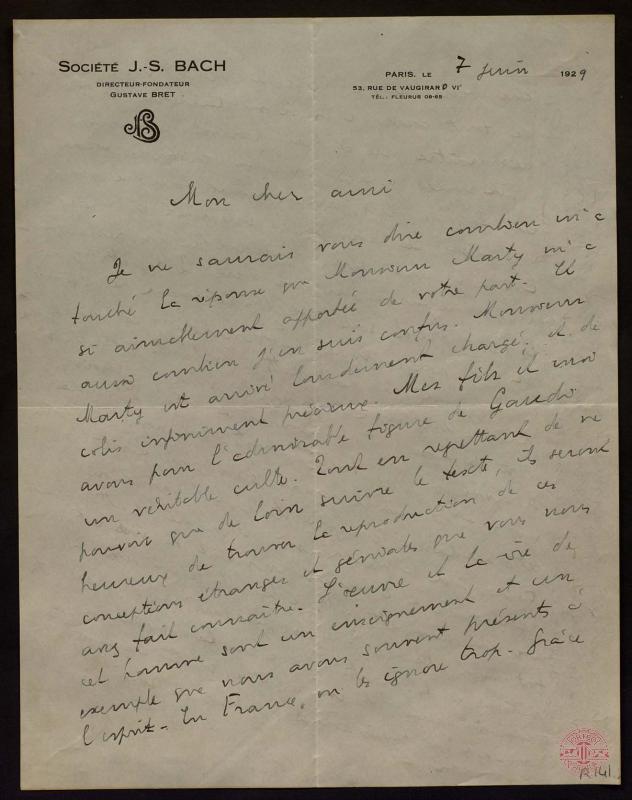 SOCIÉTÉ J.-S. BACH
DIRECTEUR-FONDATEUR
GUSTAVE BRET
PARIS, LE 7 Juin 1929
53, RUE DE VAUGIRARD VIᵉ
TÉL.: FLEURUS 08-65
Mon cher ami
Je ne saurais vous dire combien m'a
touché la réponse que Monsieur Marty m'a
si aimablement apportée de votre part. Et
aussi combien j'en suis confus. Monsieur
Marty est arrivé lourdement chargé, et de
colis infiniment précieux. Mes fils et moi
avons pour l'admirable figure de Gaudi
un véritable culte. Tout en regrettant de ne
pouvoir que de loin suivre le texte, ils seront
heureux de trouver la reproduction de ces
conceptions étranges et géniales que vous nous
avez fait connaître. L'œuvre et la vie de
cet homme sont un enseignement et un
exemple que nous avons souvent présents à
l'esprit. En France, on les ignore trop. Grâce
R 141